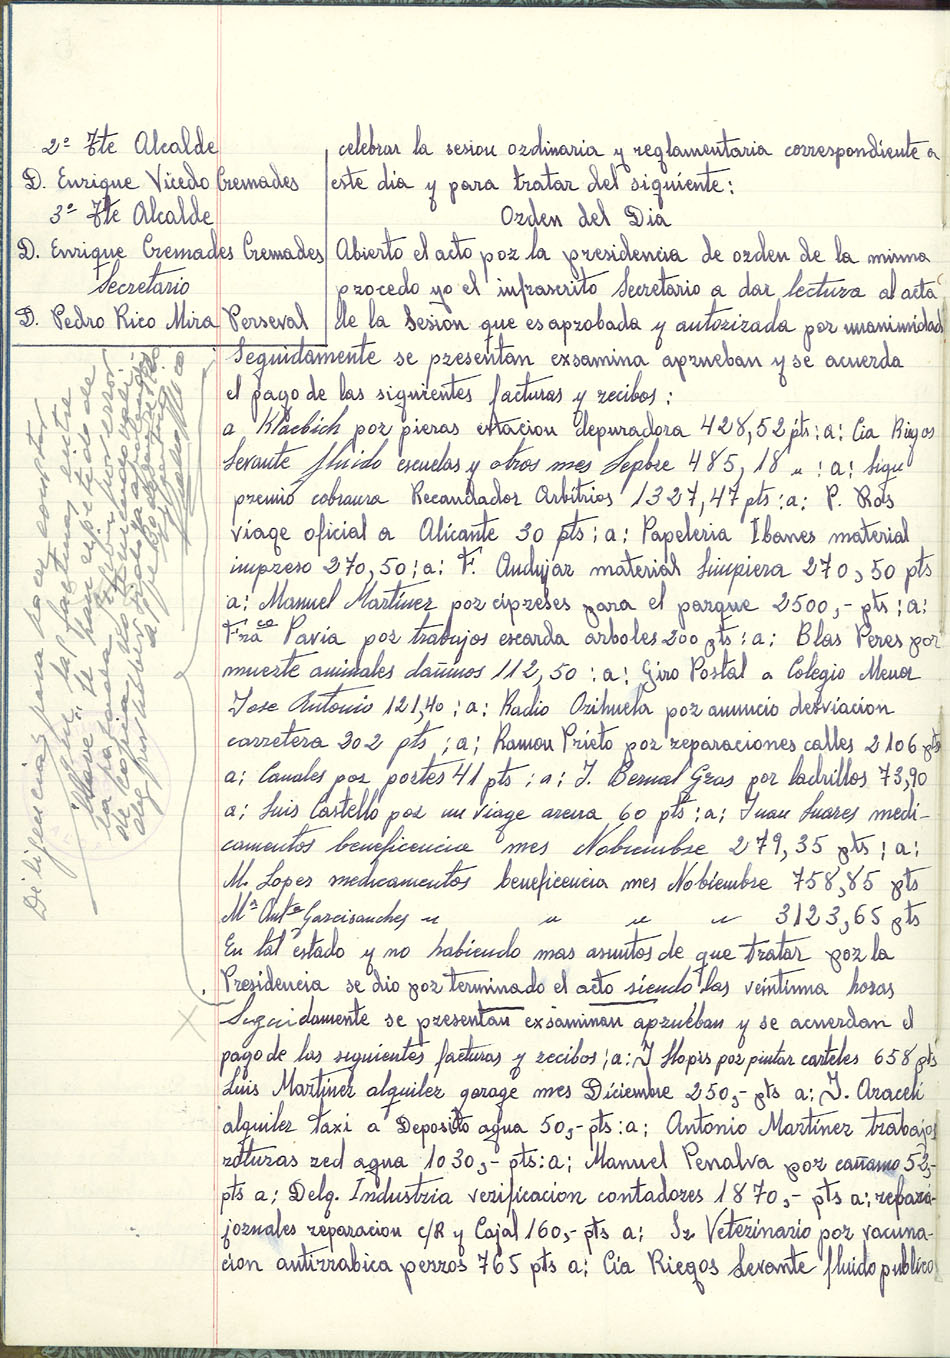 2º Tte Alcalde
D. Enrique Vicedo Cremades
3º Tte Alcalde
D. Enrique Cremades Cremades
Secretario
D. Pedro Rico Mira Perseval
celebrar la sesion ordinaria y reglamentaria correspondiente a
este dia y para tratar del siguiente:
Orden del Dia
Abierto el acto por la presidencia de orden de la misma
procedo yo el infrascrito Secretario a dar lectura al acta
de la Sesion que es aprobada y autorizada por unanimidad
Seguidamente se presentan exsamina aprueban y se acuerda
el pago de las siguientes facturas y recibos:
a Klaebich por pieras estacion depuradora 428,52 pts: a: Cia Riegos
Levante fluido escuelas y otros mes Sepbre 485,18 " : a: Sigu
premio cobraura Recaudador Arbitrios 1327,47 pts: a: P. Ros
viage oficial a Alicante 30 pts; a: Papeleria Ibanes material
impreso 270,50; a: F. Andujar material limpiera 270,50 pts
a: Manuel Martínez por cipreses para el parque 2500,- pts; a:
Fraco Pavia por trabajos escarda arboles 200 pts: a: Blas Peres por
muerte animales dañinos 112,50 : a: Giro Postal a Colegio Menor
Jose Antonio 121,40; a: Radio Orihuela por anuncio desviacion
carretera 302 pts; a: Ramon Prieto por reparaciones calles 2106 pts
a; Canales por portes 41 pts; a: J. Bernal Gras por ladrillos 73,90
a; Luis Castello por un viage arena 60 pts; a; Juan Suares medi-
camentos beneficencia mes Nobiembre 279,35 pts; a:
M. Lopes medicamentos beneficencia mes Nobiembre 758,85 pts
Mª Antª Garcisanches " " " " 3123,65 pts
En tal estado y no habiendo mas asuntos de que tratar por la
Presidencia se dio por terminado el acto siendo las veintiuna horas
Seguidamente se presentan exsaminan aprueban y se acuerdan el
pago de las siguientes facturas y recibos; a: J Llopis por pintar carteles 658 pts
Luis Martínez alquiler garage mes Diciembre 250,- pts a; J. Araceli
alquiler taxi a Deposito agua 50,- pts: a; Antonio Martínez trabajos
roturas red agua 1030,- pts: a; Manuel Penalva por cañamo 52,-
pts a; Delg. Industria verificacion contadores 1870,- pts a;
jornales reparacion c/R y Cajal 160,- pts a; Sr Veterinario por vacuna-
cion antirrabica perros 765 pts a; Cia Riegos Levante fluido publico
Diligencia; para hacer constar
que las facturas entre
"llave" se han repetido de